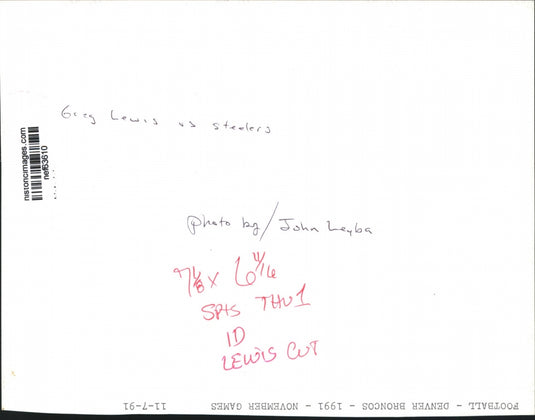 Greg Lewis vs steelers
historicimages.com
nef63610
photo by/John Leyba
7 1/8 x 6 11/16
SPTS THU 1
1D
LEWIS CUT
FOOTBALL - DENVER BRONCOS - 1991 - NOVEMBER GAMES 11-7-91